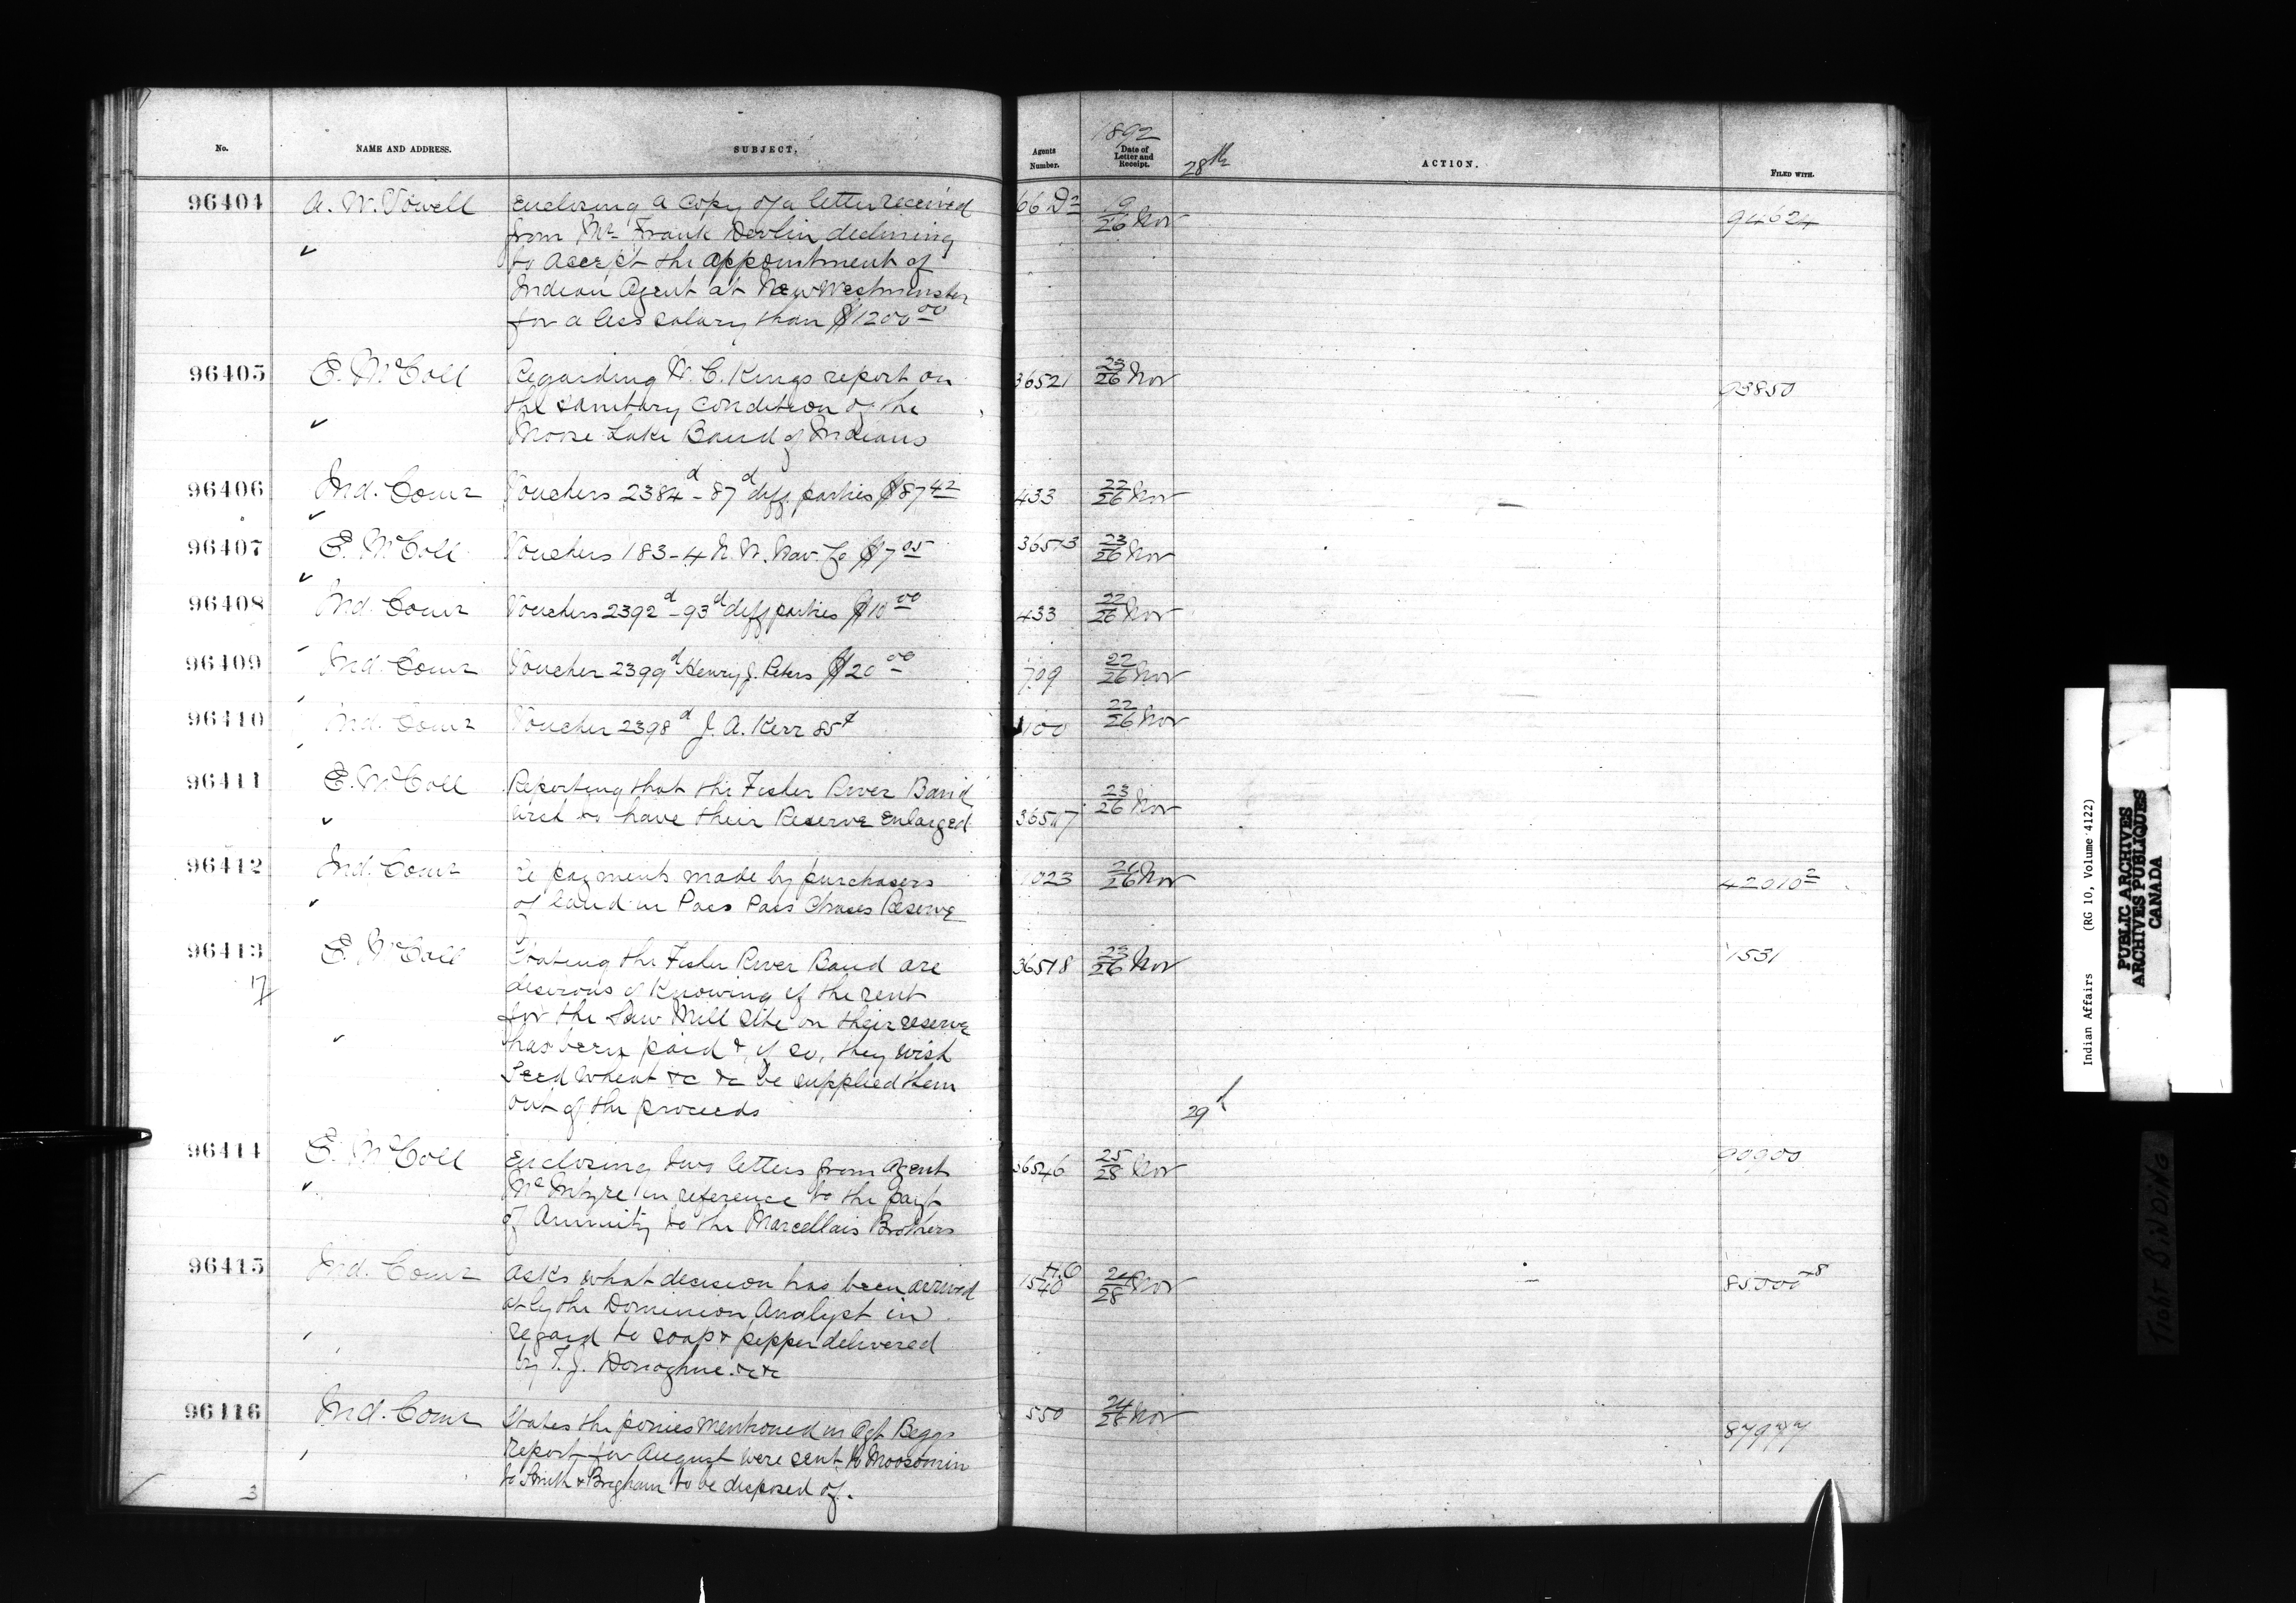 1892
No. NAME AND ADDRESS. SUBJECT. Agents Number. Date of Letter and Receipt. 28th ACTION. FILED WITH.
96404 A. W. Vowell Enclosing a copy of a letter received 66 D2 19/26 Nov 94624
from Mr Frank Devlin declining
to accept the appointment of
Indian Agent at New Westminster
for a less salary than $1200 00
96405 E. McColl Regarding W. C. Kings report on 36521 23/26 Nov 93850
the sanitary condition of the
Moose Lake Band of Indians
96406 Ind. Comr Vouchers 2384d - 87d diff parties $87 42 433 22/26 Nov
96407 E. McColl Vouchers 183-4 N. W. Nav. Co $7 05 36513 23/26 Nov
96408 Ind. Comr Vouchers 2392d - 93d diff parties $10 00 433 22/26 Nov
96409 Ind. Comr Voucher 2399d Henry J. Peters $20 00 709 22/26 Nov
96410 Ind. Comr Voucher 2398d J. A. Kerr 85¢ 100 22/26 Nov
96411 E. McColl Reporting that the Fisher River Band 23/26 Nov
wish to have their Reserve enlarged 36517
96412 Ind. Comr re payments made by purchasers 1023 26 Nov 42010 2
of land in Pass Pass Chases Reserve
96413 E. McColl Stating the Fisher River Band are 36518 23/26 Nov 1531
17 desirous of knowing if the rent
for the Saw Mill site on their reserve
has been paid &, if so, they wish
Seed wheat &c &c be supplied them
out of the proceeds
29th
96414 E. McColl Enclosing two letters from Agent 36546 25/28 Nov 90900
McIntyre in reference to the payt
of Annuity to the Marcellais Brothers
96415 Ind. Comr Asks what decision has been arrived H.O 1540 24/28 Nov
at by the Dominion Analyst in
regard to soap & pepper delivered
by T. J. Donoghue &c &c
96416 Ind. Comr States the ponies mentioned in Agt Beggs 550 24/28 Nov
report for August were sent to Moosomin
to Smith & Brigham to be disposed of.
3
Indian Affairs (RG 10, Volume 4122)
PUBLIC ARCHIVES
ARCHIVES PUBLIQUES
CANADA
TIGHT BINDING